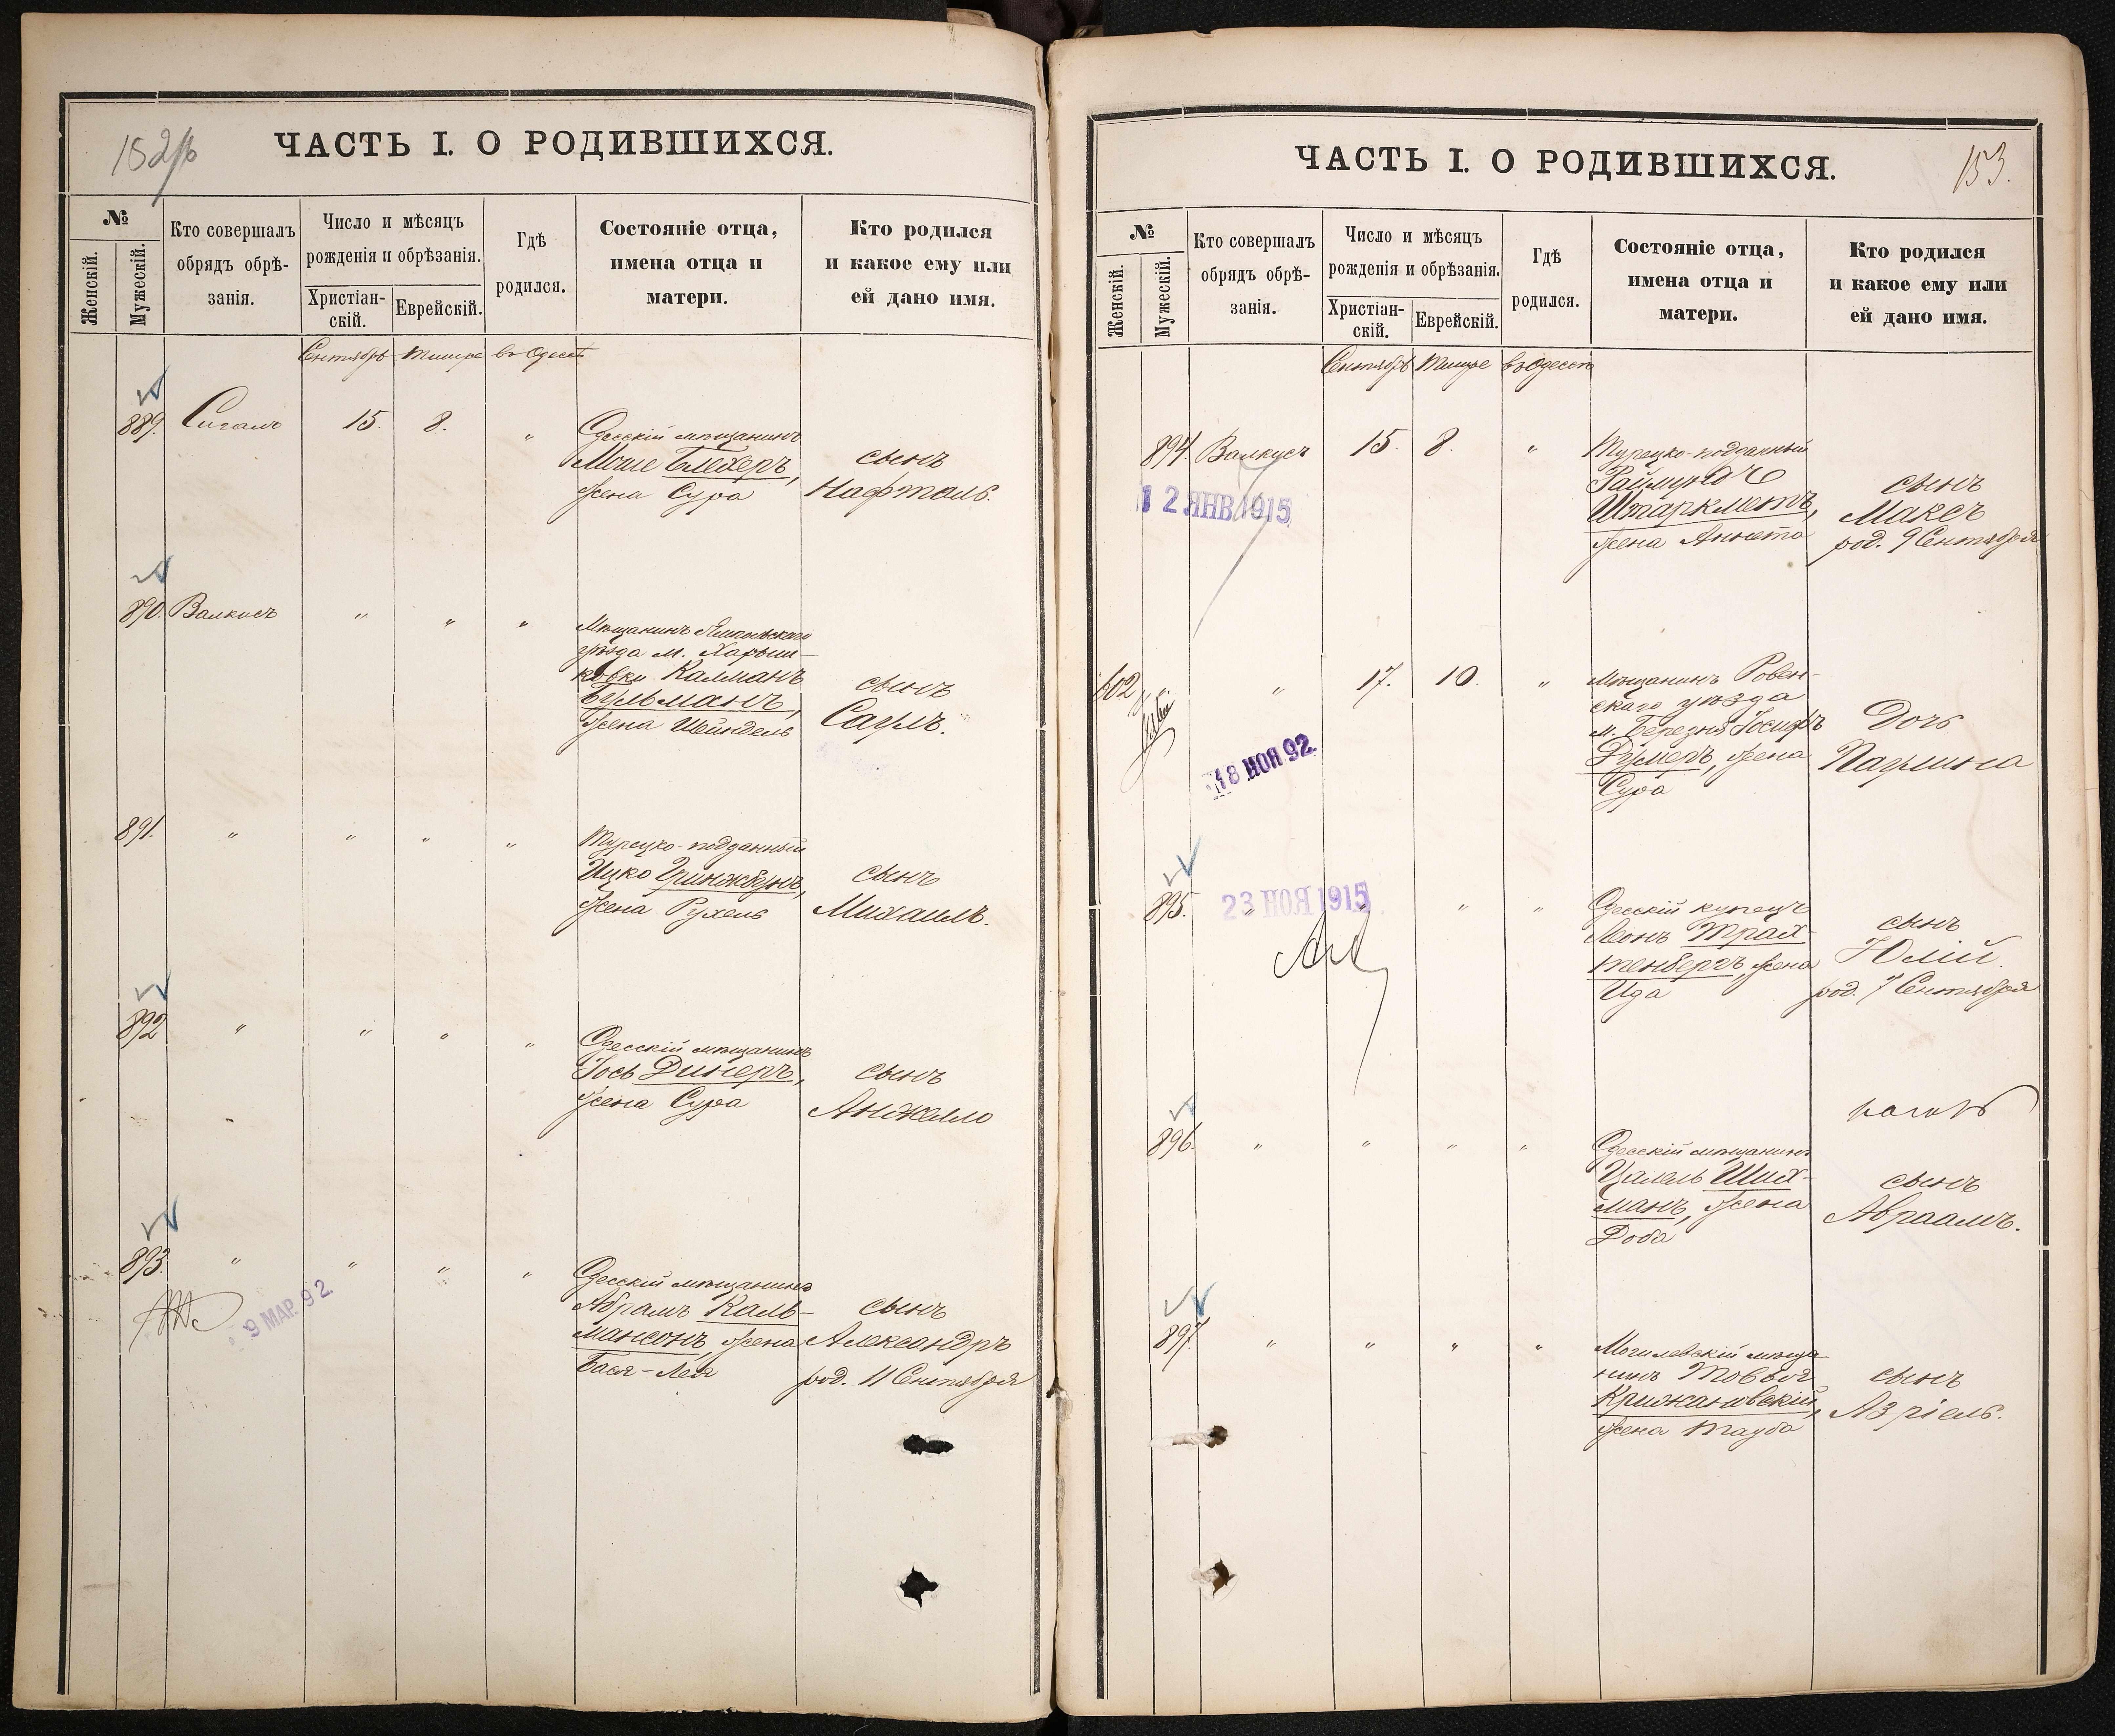 152/б
ЧАСТЬ I. О РОДИВШИХСЯ.
№
Женскій.
Мужескій.
Кто совершалъ
обрядъ обрѣ-
занія.
Число и мѣсяцъ
рожденія и обрѣзанія.
Христіан-
скій.
Еврейскій.
Гдѣ
родился.
Состояніе отца,
имена отца и
матери.
Кто родился
и какое ему или
ей дано имя.
Сентябрь Тишре въ Одессѣ
889. Сигалъ 15. 8. "
Одесскій мѣщанинъ
Моше Блехеръ,
жена Сура
сынъ
Нафтоль.
890. Валкисъ " " "
Мѣщанинъ Ямпольскаго
уѣзда м.
Калманъ
Гульманъ,
жена Шейндель
сынъ
Саулъ.
891. " " " "
Турецко-подданный
Ицко
жена Рухель
сынъ
Михаилъ.
892 " " " "
Одесскій мѣщанинъ
Іось Динеръ,
жена Сура
сынъ
Анжелло
893. " " " "
9 МАР. 92.
Одесскій мѣщанинъ
Абрамъ Каль-
мансонъ, жена
Бася-Лея
сынъ
Александръ
род. 11 Сентября
153.
ЧАСТЬ I. О РОДИВШИХСЯ.
№
Женскій.
Мужескій.
Кто совершалъ
обрядъ обрѣ-
занія.
Число и мѣсяцъ
рожденія и обрѣзанія.
Христіан-
скій.
Еврейскій.
Гдѣ
родился.
Состояніе отца,
имена отца и
матери.
Кто родился
и какое ему или
ей дано имя.
Сентябрь Тишре въ Одессѣ
894. Валкисъ 15. 8. "
12 ЯНВ 1915
Турецко-подданный
Раймундъ
Штаркметъ,
жена Аннета
сынъ
Максъ
род. 9 Сентября
602 " 17. 10. "
18 НОЯ 92.
Мѣщанинъ Ровен-
скаго уѣзда
м. Березня Іосифъ
Думеръ, жена
Сура
Дочь
Паулина
895. " " " "
23 НОЯ 1915
Одесскій купецъ
Леонъ Трах-
тенбергъ жена
Ида
сынъ
Юлій
род. 7 Сентября
896. " " " "
Одесскій мѣщанинъ
Цалель Ших-
манъ, жена
Доба
сынъ
Авраамъ.
897. " " " "
Могилевскій мѣща
нинъ Товвія
Крижановскій,
жена Тауба
сынъ
Азріель.